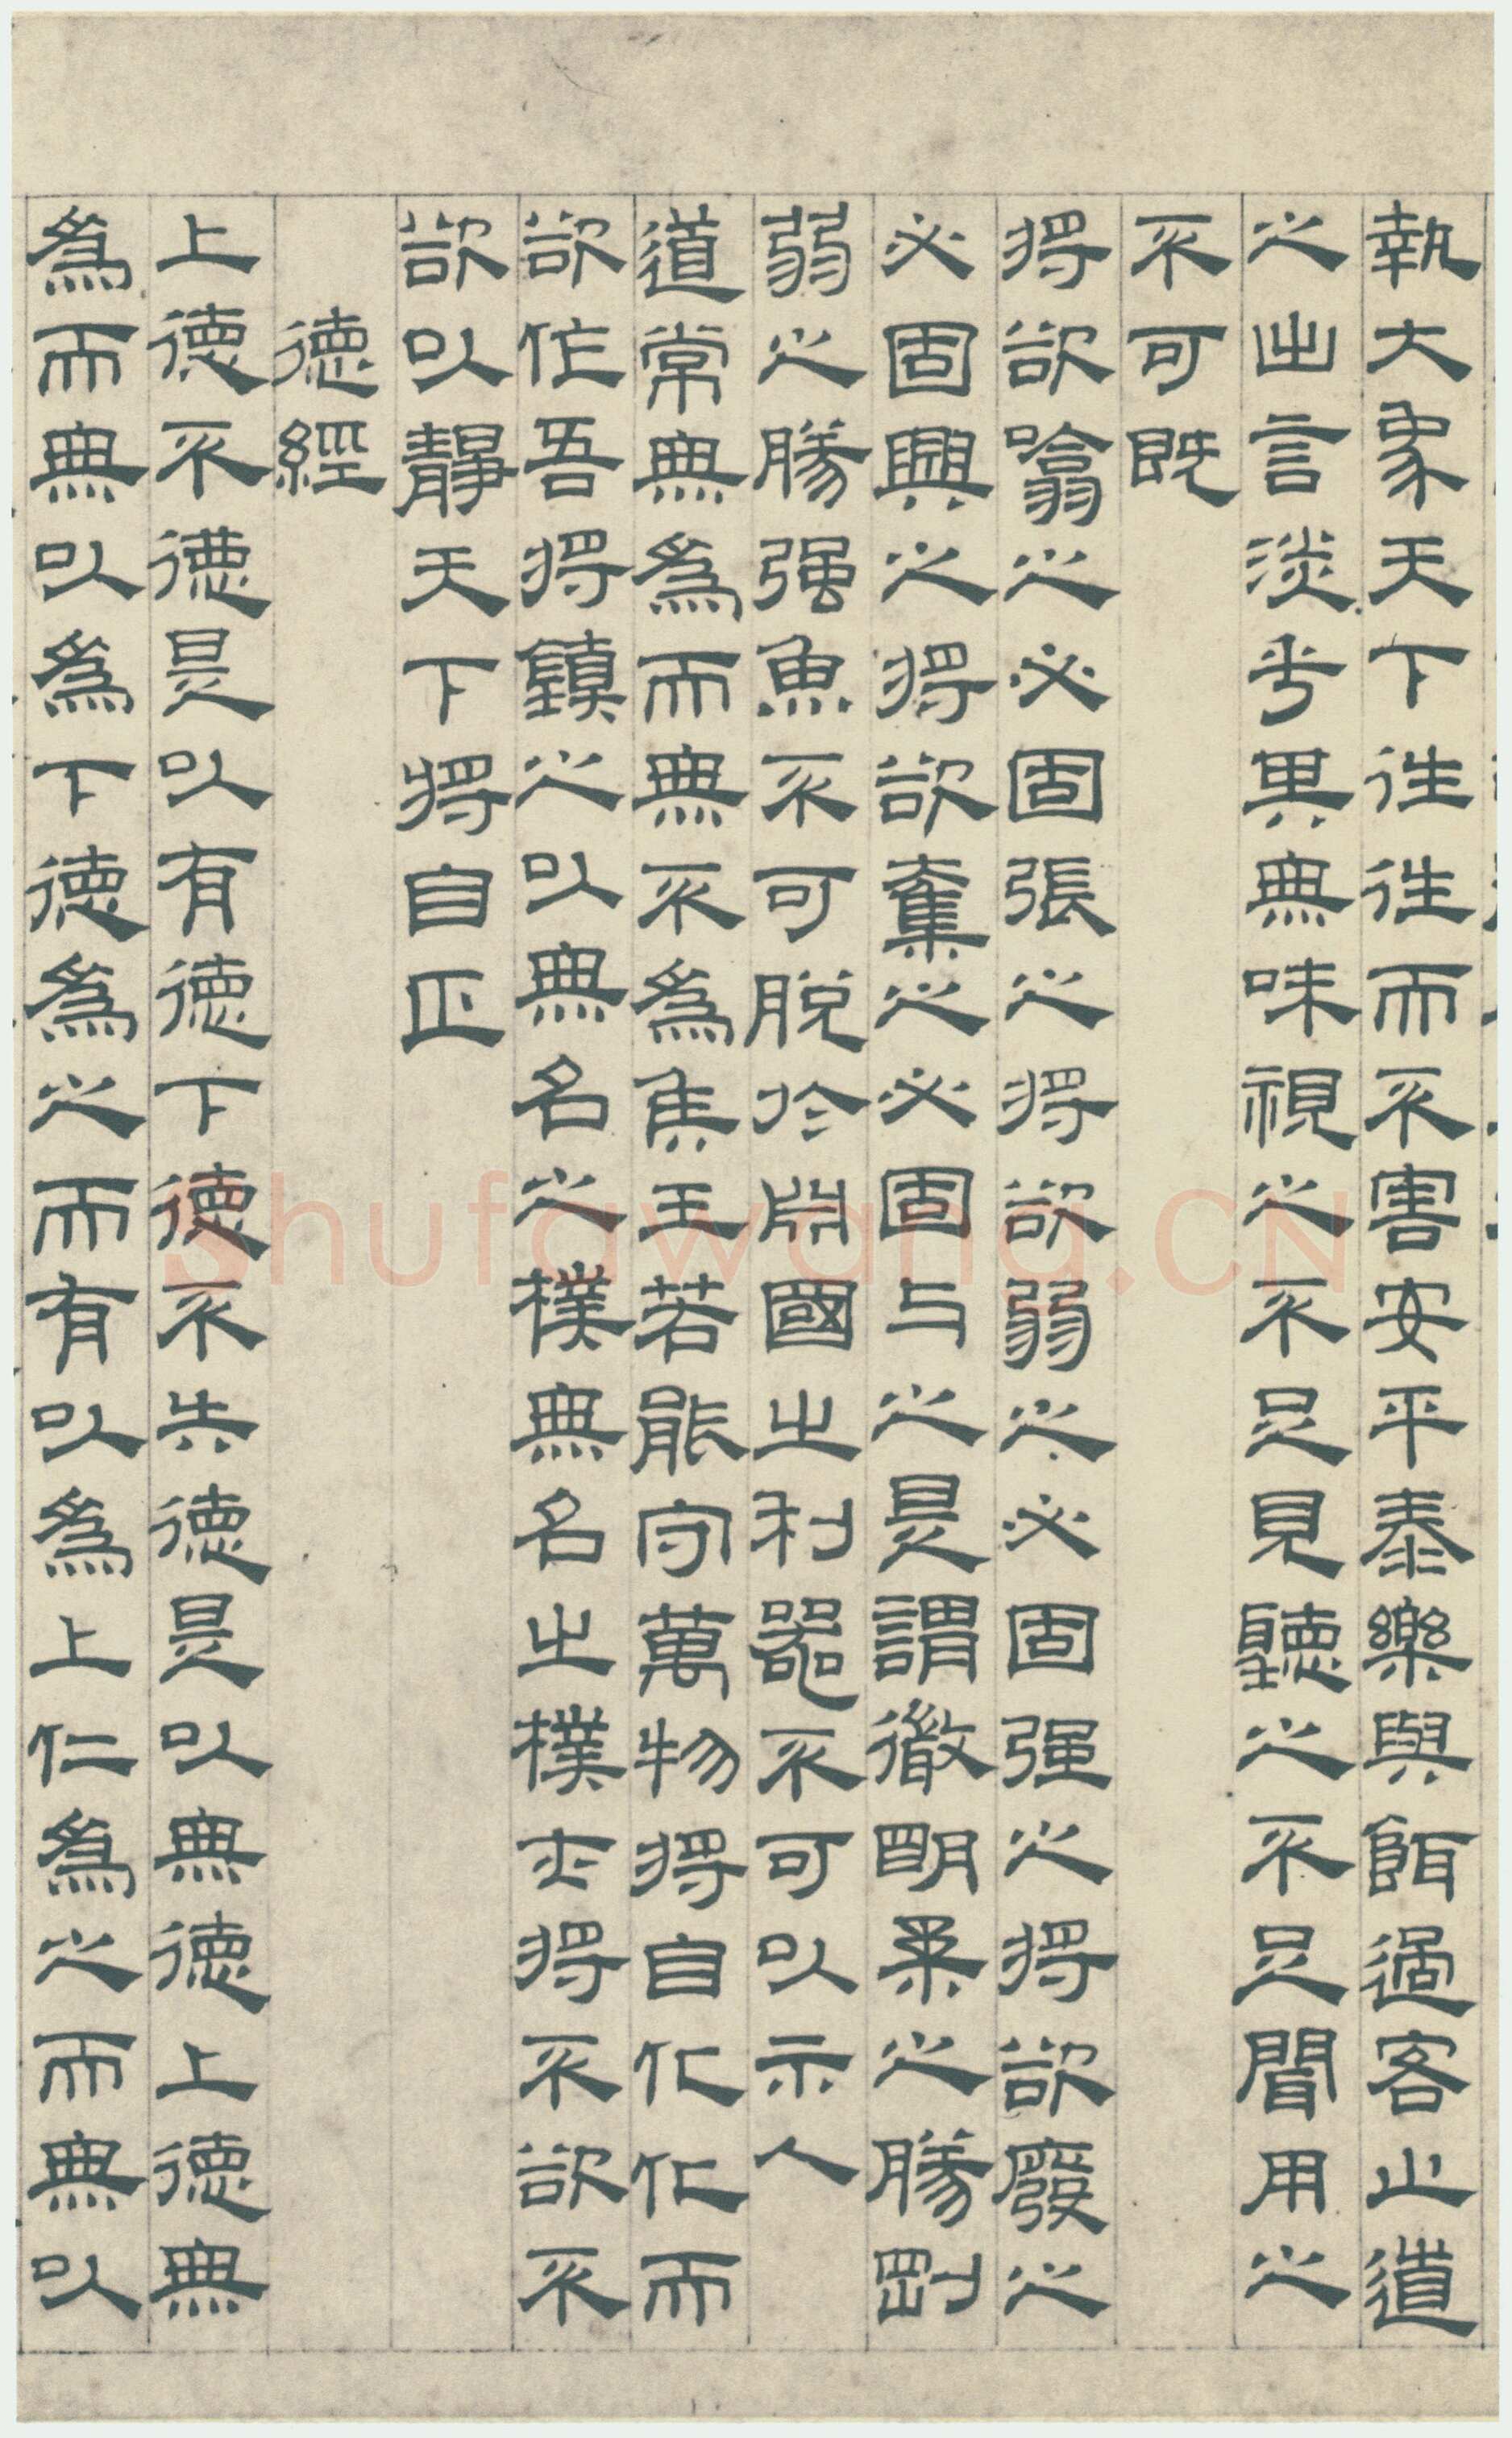 執大象天下往往而不害安平泰樂與餌過客止道
之出言淡兮其無味視之不足見聽之不足聞用之
不可既
將欲噏之必固張之將欲弱之必固强之將欲廢之
必固興之將欲奪之必固与之是謂微明柔之勝剛
弱之勝强魚不可脱於淵國之利器不可以示人
道常無為而無不為侯王若能守萬物將自化化而
欲作吾將鎮之以無名之樸無名之樸亦將不欲不
欲以靜天下將自正
德經
上德不德是以有德下德不失德是以無德上德無
為而無以為下德為之而有以為上仁為之而無以
Shufawang.CN